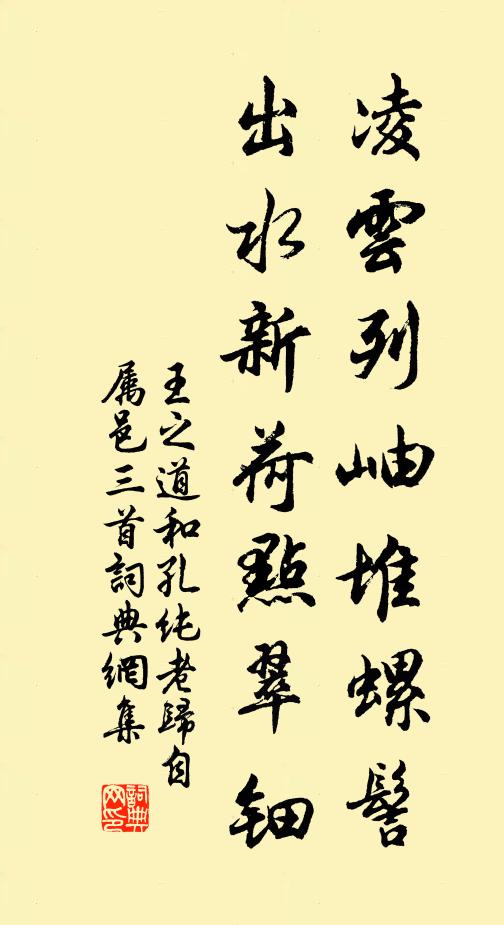 凌雲列岫堆螺髻
出水新荷點翠鈿
王之道和孔纯老歸自
属邑三首詞典網集
詞典
网印